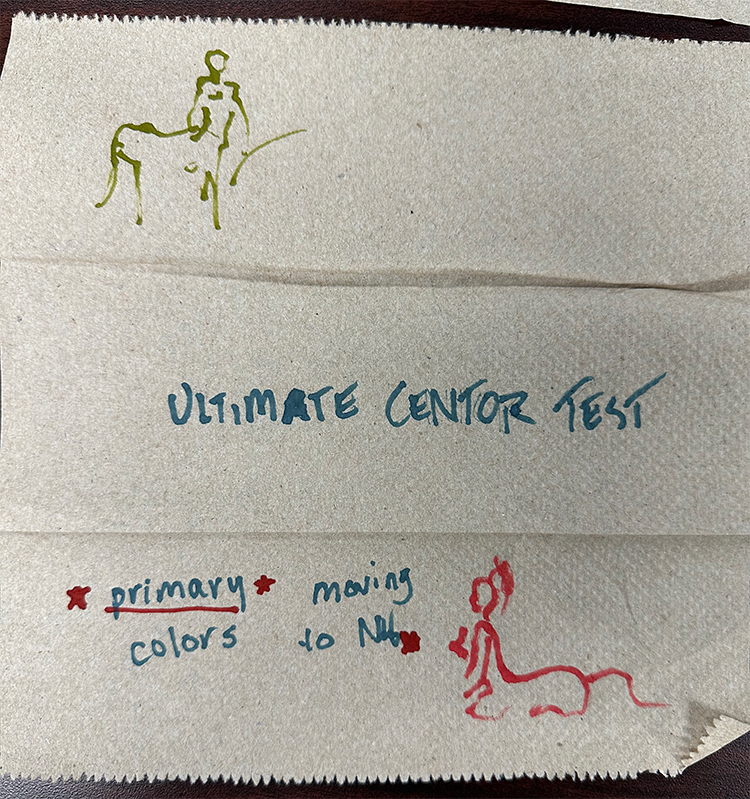 ULTIMATE CENTOR TEST
* primary *
colors
moving
to